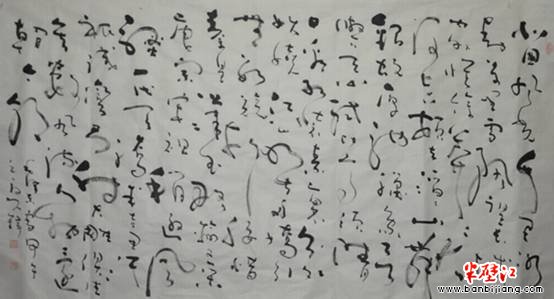 北国风光千里冰
封万里雪飘望长
城内外惟余莽莽大
河上下顿失滔滔山舞
银蛇原驰蜡象欲
与天公试比高须晴
日看红装素裹分外
妖娆江山如此多娇引
无数英雄竞折腰惜
秦皇汉武略输文采
唐宗宋祖稍逊风
骚一代天骄成吉思汗
只识弯弓射大雕俱往矣
数风流人物还看
今朝
半壁江
www.banbijiang.com